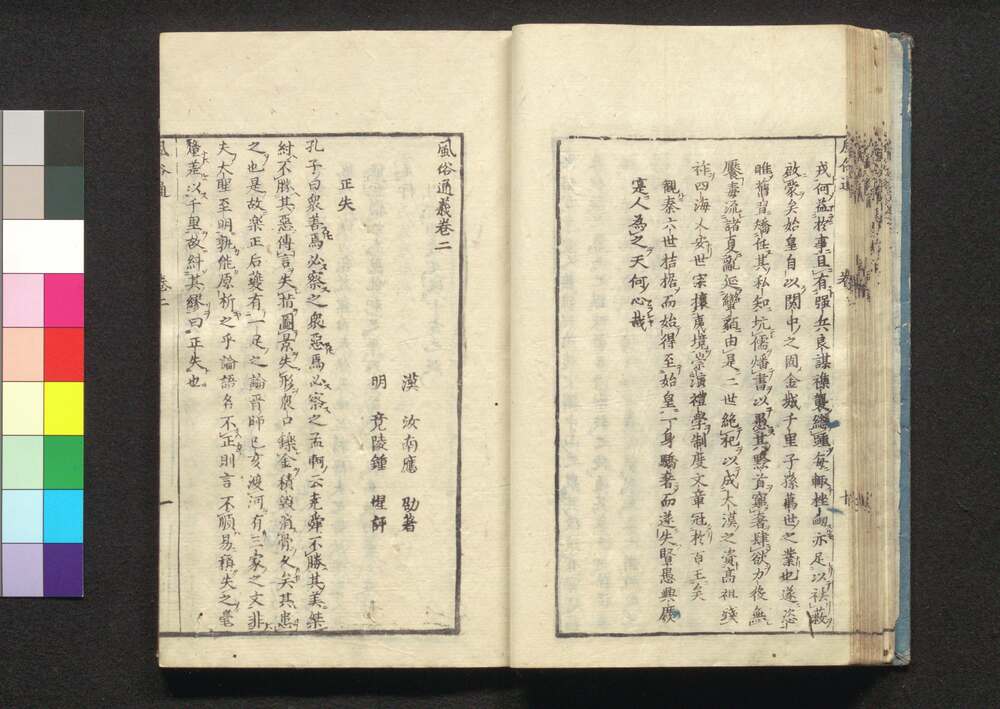 戎何益於事且有強兵良謀襍襲繼踵每輒挫衂亦足以祛蔽
啟蒙矣始皇自以関中之固金城千里子孫萬世之業也遂恣
睢舊習矯任其私知坑儒燔書以愚其黔首窮奢肆欲力役無
饜毒流諸夏亂延蠻貊由是二世絶祀以成大漢之資高祖踐
祚四海乂安世宗攘夷境崇演禮學制度文章冠於百王矣
觀秦六世拮据而始得至始皇一身驕奢而遂失賢愚興廢
寔人為之天何心哉
風俗通義卷二
漢 汝南應 劭著
明 竟陵鍾 惺評
正失
孔子曰衆善焉必察之衆惡焉必察之孟軻云尭舜不勝其美桀
紂不勝其惡傳言失指圖景失形衆口鑠金積毀消骨久矣其患
之也是故楽正后夔有一足之論晋師己亥渡河有三豕之文非
夫大聖至明孰能原析之乎論語名不正則言不順易稱失之毫
釐差以千里故糾其繆曰正失也
風俗通 卷二 一